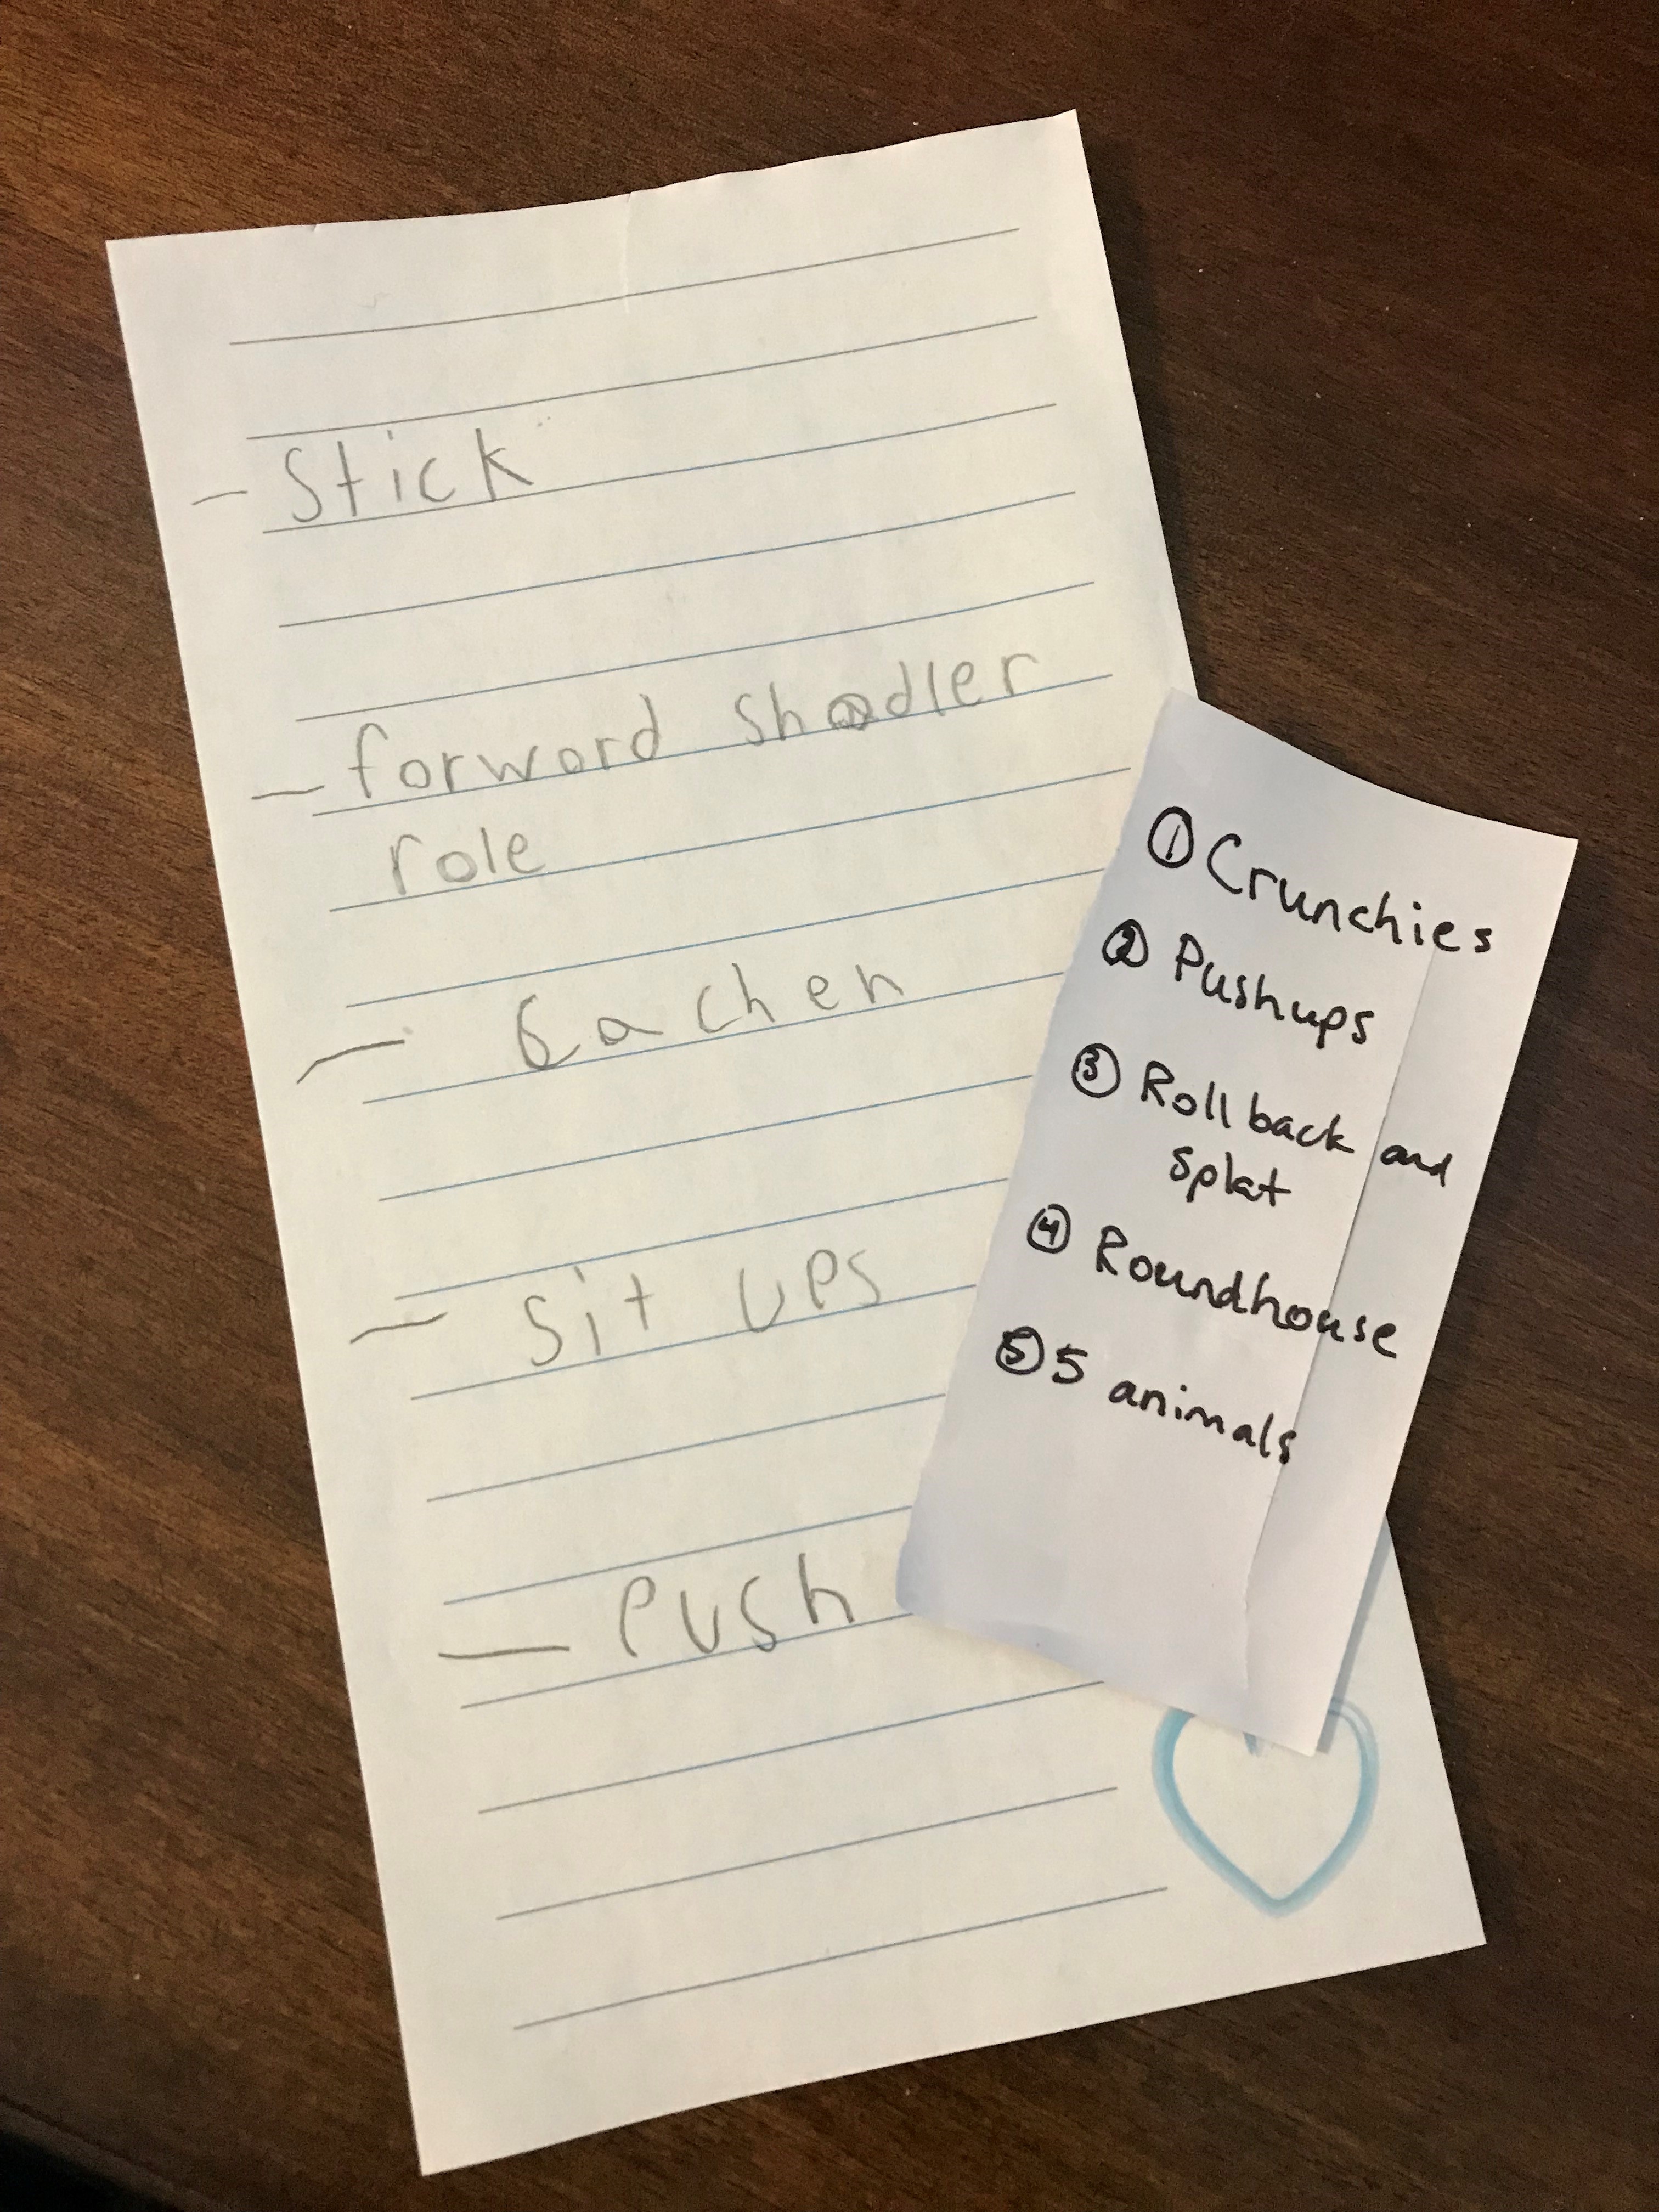 - Stick
- forword shodler
role
- Gachen
- Sit UPS
- PUSh
① Crunchies
② Pushups
③ Roll back and
splat
④ Roundhouse
⑤ 5 animals